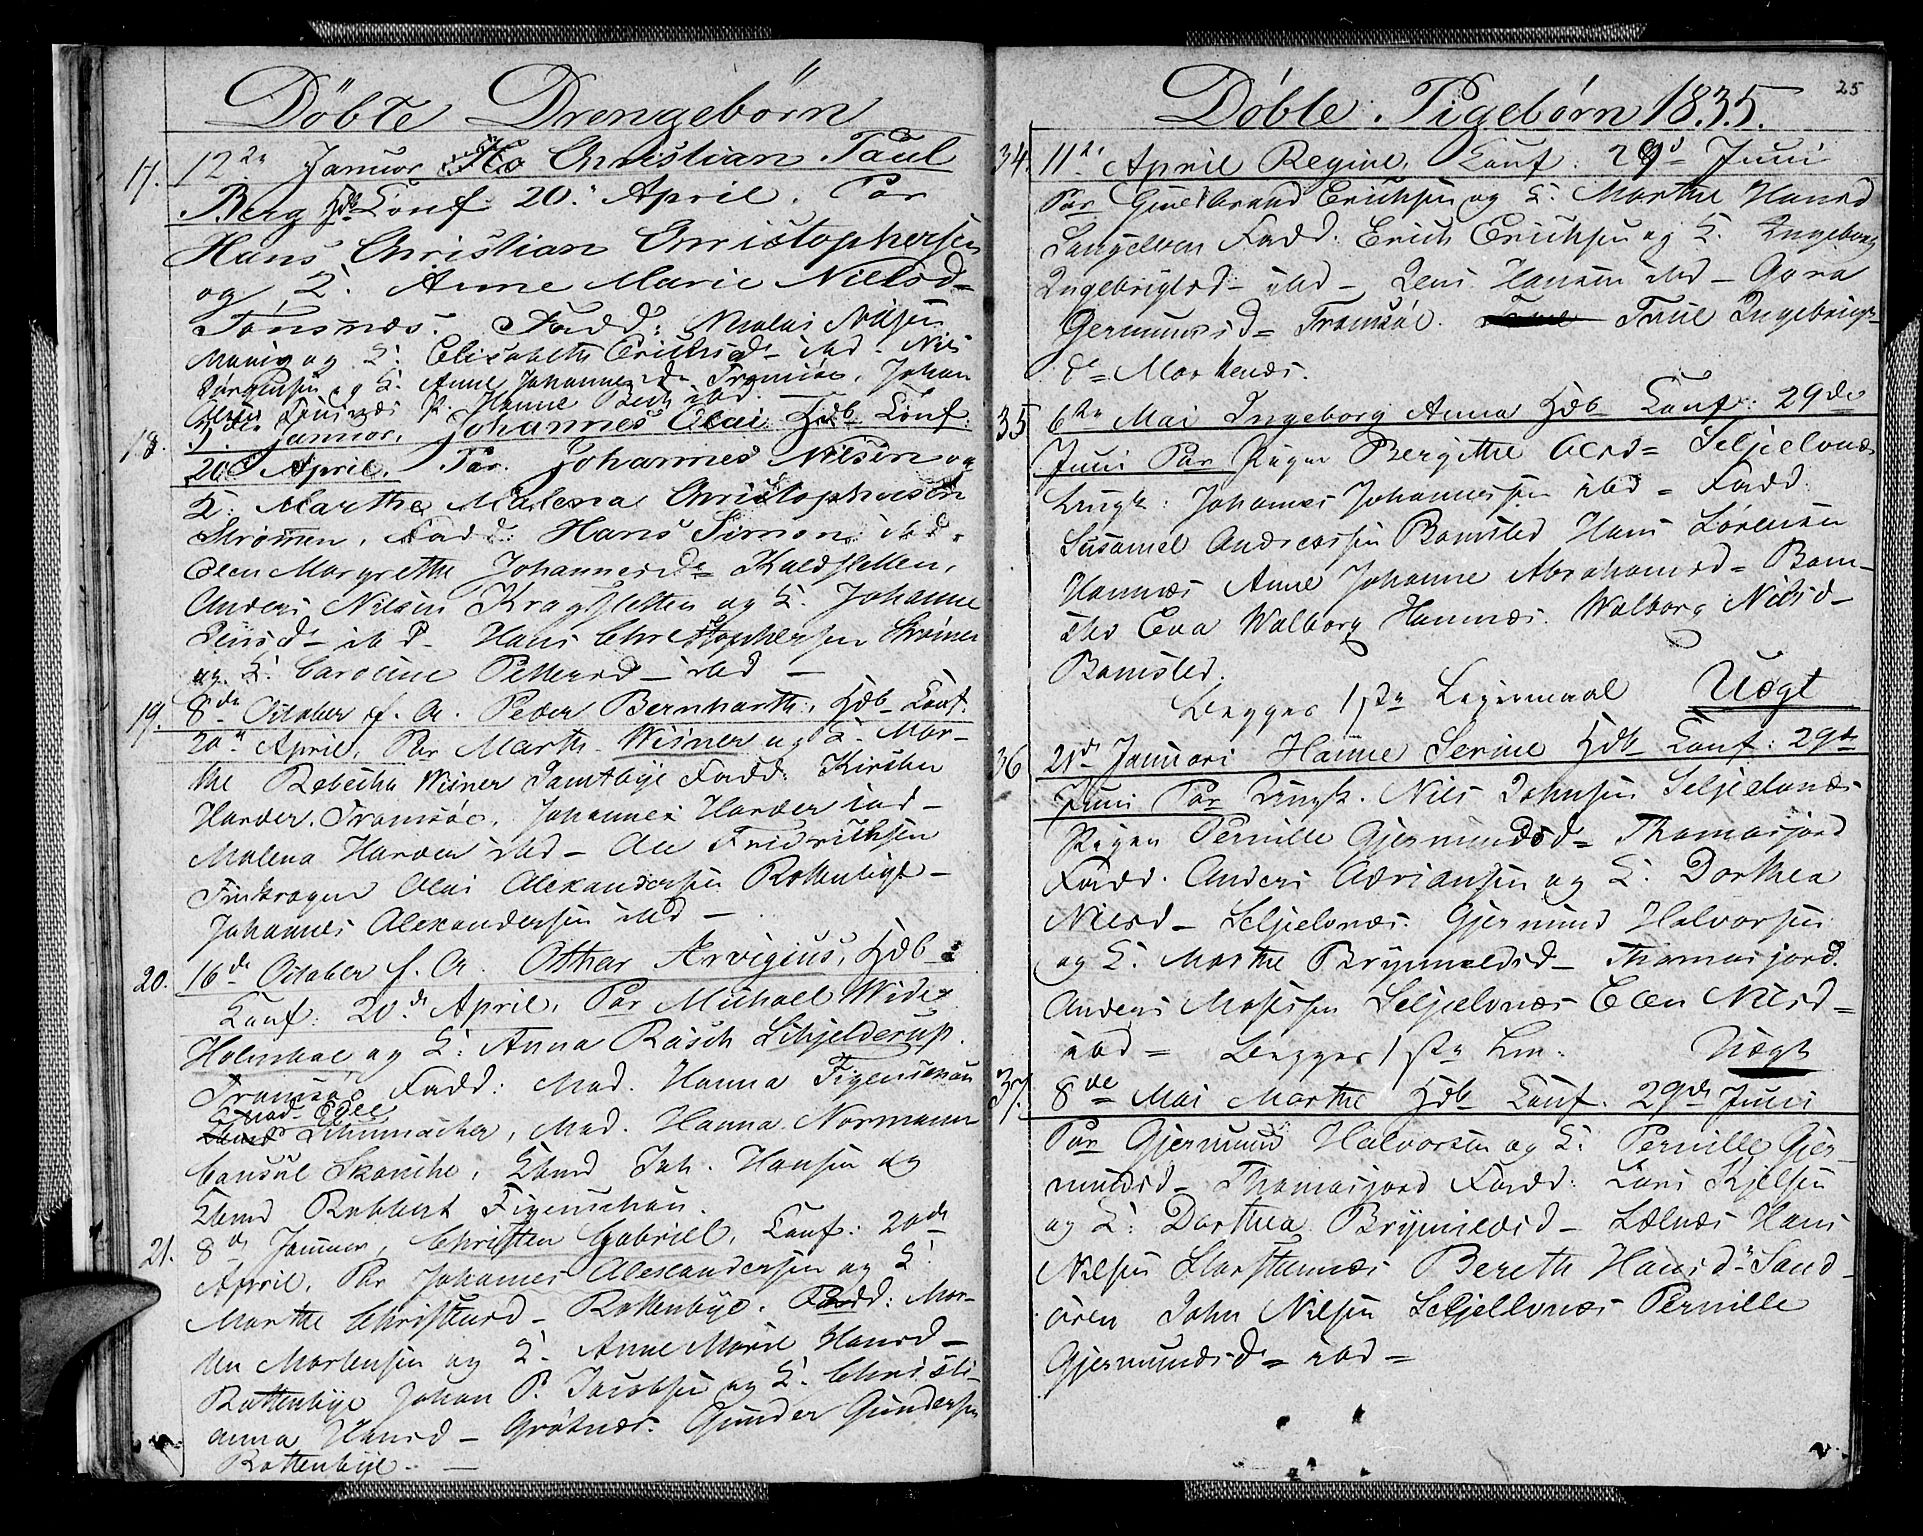 Döbte Drengebörn
17. 12te Januar Christian Paul
Berg Hdb Conf. 20. April. Par
Hans Christian Christophersen
og K. Anne Marie Nielsd=
Tönsnæs. Fadd: Nicolai Nilsen
og K. Elisabeth Erichsd= ibd. Nils
Jörgensen og K. Anne Johannesd= Tromsöe. Johan
P. Hanne Bech ibd.
18. 5de Januar, Johannes Elai Hdb Conf.
20d April. Par. Johannes Nilsen og
K. Marthe Malena Christophersen
Strömen. Fadd: Hans Simon ibd.
Elen Margrethe Johannesd= Kaldsletten.
Anders Nilsen Kragsletten og K. Johanne
Jensd- ibd. Hans Christophersen Strömen
og K. Caroline Pettersd- ibd -
19. 8de October f. A. Peder Bernharth. Hdb Conf.
20d April. Par Marth. Wisner og K. Mar-
the Rebecha Wisner Tamtbye Fadd: Kirsten
Harder. Tromsöe. Johannes Harder ibd-
Malena Harder ibd- Ole Fridrichsen
Finkrogen Olai Alexandersen Rottenbye-
Johannes Alexandersen ibd-
20. 16de October f. A. Othar Arvigius. Hdb
Conf: 20d April. Par Michael Wide
Holmboe og K: Anna Rasch Schjelderup.
Tromsöe Fadd: Mad. Hanna Figenschau
Mad. Edel
Schumacher, Mad. Hanna Normann
Consul Skancke. Kbmd Joh. Hansen og
Kbmd Robbert Figenschau.
21. 8de Januar, Christen Gabriel. Conf: 20de
April. Par Johannes Alexandersen og K.
Marthe Christensd- Rottenbye. Fadd: Mor-
ten Mortensen og K. Anne Marie Hansd-
Rottenbye Johan P. Jacobsen og K. Christi-
anna Hansd- Grötnæs. Gunder Gundersen
Rottenbye. -
25
Döbte Pigebörn 1835.
34. 11d April Regine. Conf. 29d Juni
Par Guldbrand Erichsen og K. Marthe Hansd
Fadd. Erich Erichsen og K. Ingeborg
Ingebrigtsd- ibd- Jens Hansen ibd- Gora
Germundsd= Tromsöe. Trine Ingebrigts-
d= Markenæs.
35 6te Mai Ingeborg Anna Hdb Conf: 29de
Juni Par Pigen Bergitthe Olsd= Seljelvnæs
Ungk: Johannes Johannessen ibd= Fadd:
Susamel Andreassen Bamsted Hans Lorensen
Hamnæs Anne Johanne Abrahamsd= Bam-
sted Eva Walborg Hamnæs. Walborg Nilsd-
Bamsted.
Begges 1ste Leiermaal Uægt
36 21d Januari Hanne Serine Hdb Conf: 29de
Juni Par Ungk. Niels Johnsen Seljelvnæs
Pigen Pernille Gjermundsd= Thomasjord
Fadd. Anders Adriansen og K. Dorthea
Nielsd- Seljelvnæs. Gjermund Halvorsen
og K. Marthe Brynneldsd- Thomasjord.
Anders Mosessen Seljelvnæs Elen Nilsd=
ibd= Begges 1ste Lm. Uægt
37. 8de Mai Marthe Hdb Conf. 29de Juni
Par Gjermund Halvorsen og K. Pernille Gjer-
mundsd- Thomasjord Fadd: Lars Kjelsen
og K: Dorthea Brynnildsd- Lælnæs Hans
Nilsen Storstennæs Bereth Hansd= Sand-
ören John Nilsen Seljellvnæs Pernille
Gjermundsd= ibd=